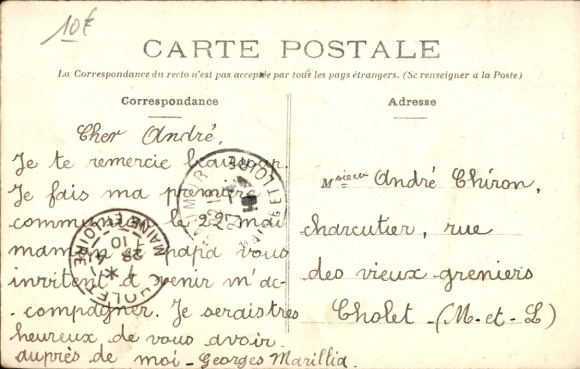 10€
CARTE POSTALE
La Correspondance du recto n'est pas acceptée par tous les pays étrangers. (Se renseigner à la Poste)
Correspondance
Cher André,
Je te remercie beaucoup.
Je fais ma première
communion le 22 mai
maman et papa vous
invitent à venir m'ac-
compagner. Je serais très
heureux de vous avoir
auprès de moi - Georges Marillia.
Adresse
Msieur André Chiron,
charcutier, rue
des vieux greniers
Cholet - (M. et L)
CHOLET
MAINE ET LOIRE
ET LOIRE